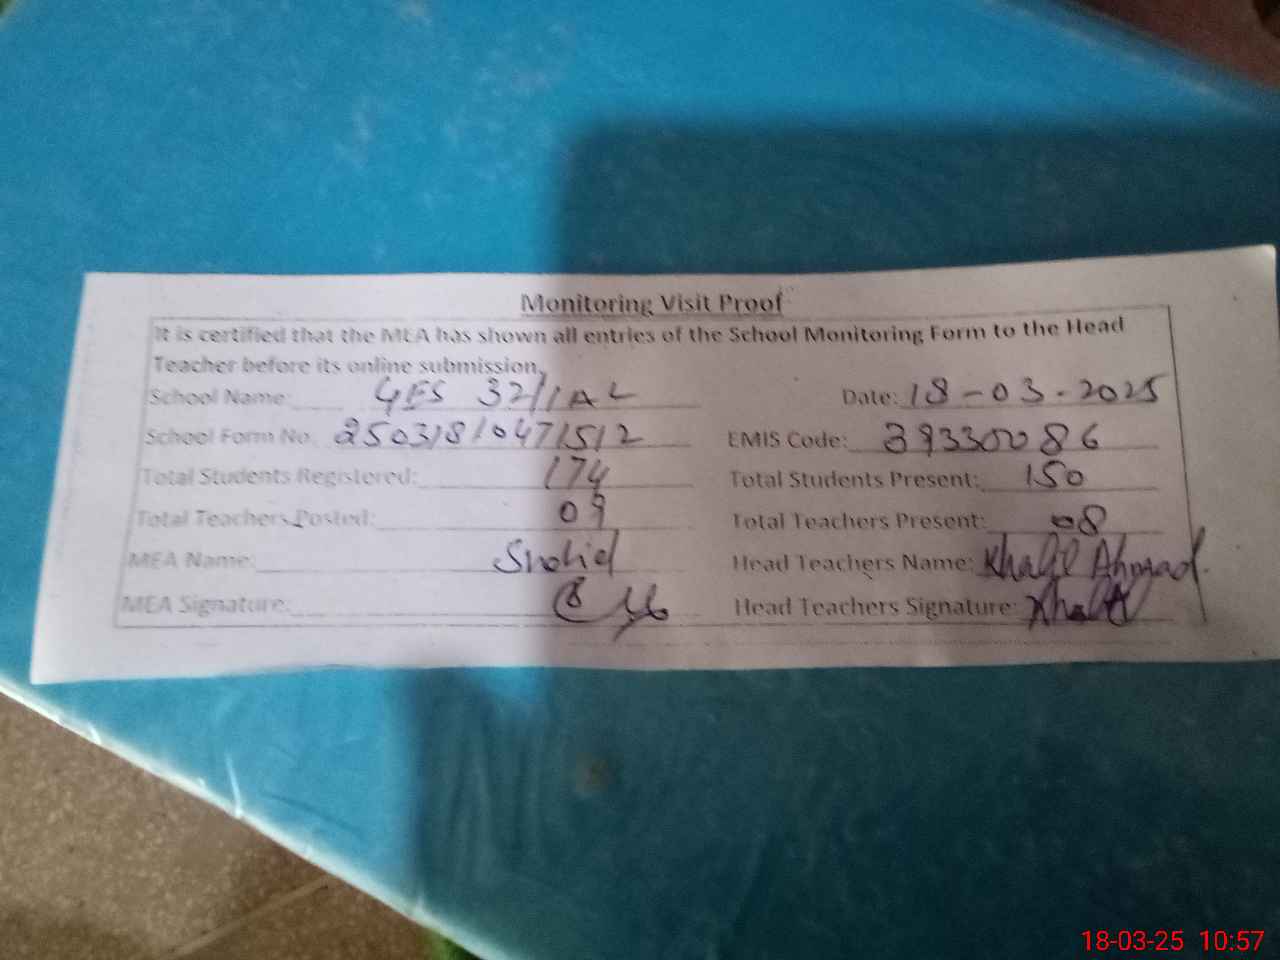 Monitoring Visit Proof
It is certified that the MEA has shown all entries of the School Monitoring Form to the Head
Teacher before its online submission.
School Name: GES 32/1AL Date: 18-03-2025
School Form No. 25031810471512 EMIS Code: 39330086
Total Students Registered: 174 Total Students Present: 150
Total Teachers Posted: 09 Total Teachers Present: 08
MEA Name: Shahid Head Teachers Name: Khalil Ahmad.
MEA Signature: Head Teachers Signature: Khalil
18-03-25 10:57